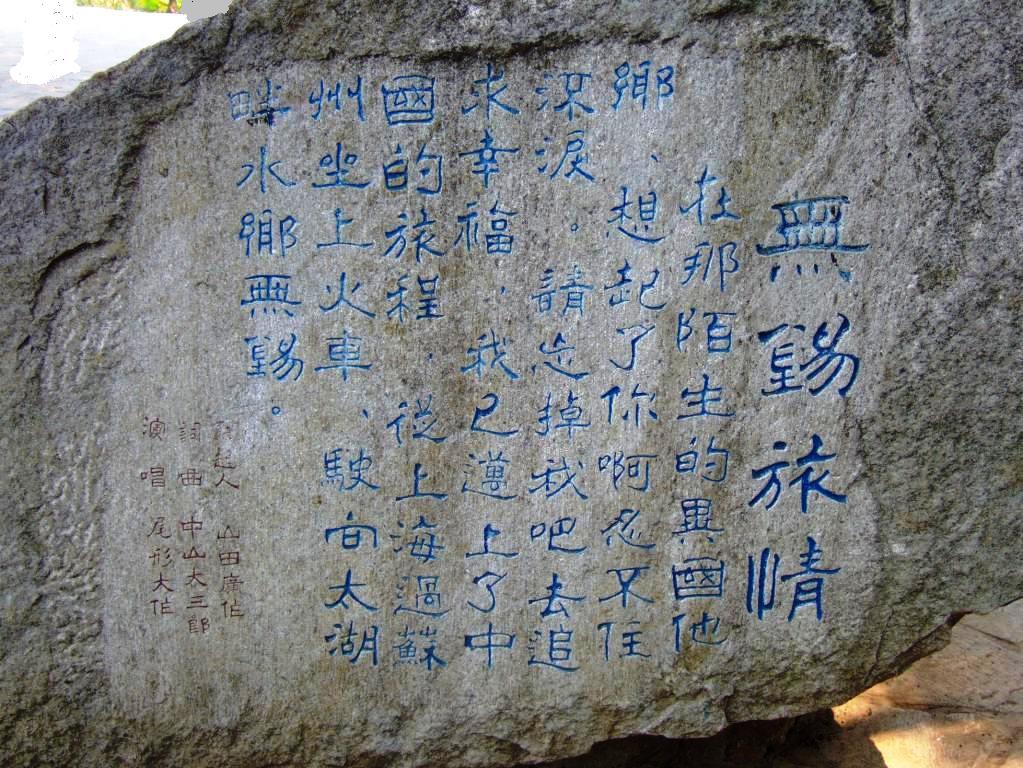 無錫旅情
在那陌生的異國他
鄉、想起了你啊忍不住
深淚。請忘掉我吧去追
求幸福，我已邁上了中
國的旅程，從上海過蘇
州坐上火車、駛向太湖
畔水鄉無錫。
人 山田廣作
詞曲 中山大三郎
演唱 尾形大作